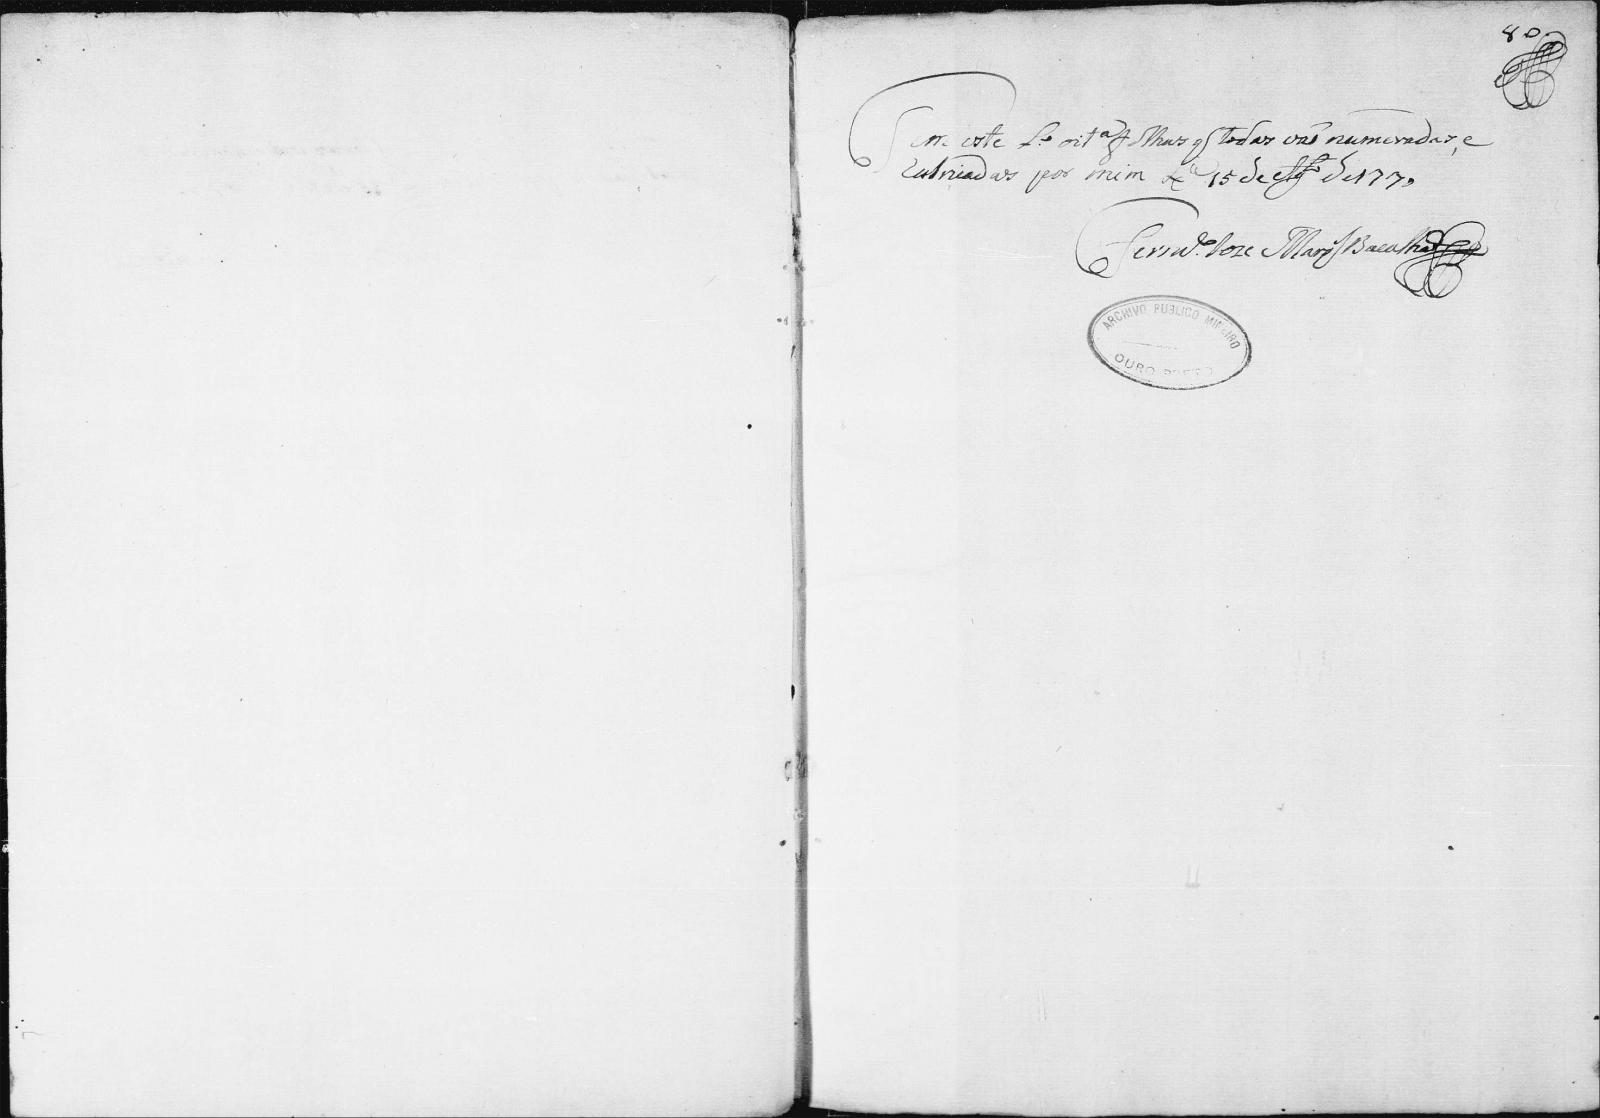 80
Tem este L.º oit.ª folhas q̃ todas vaõ numeradas, e
rubricadas por mim 15 de de 177
Fern.do Joze
ARCHIVO PUBLICO MINEIRO
OURO PRETO